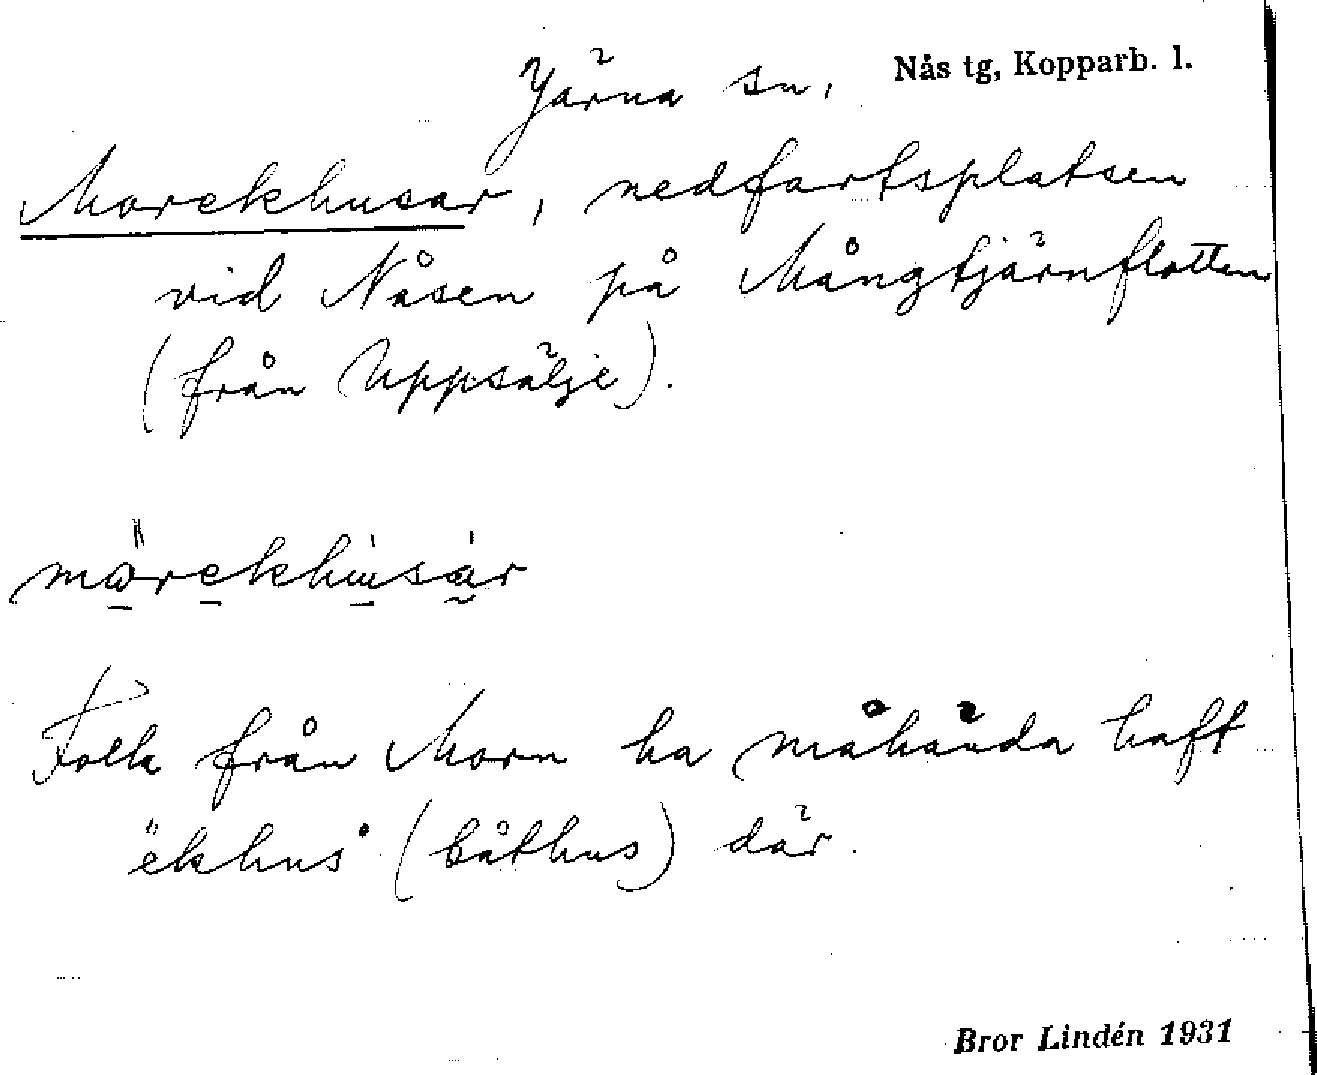 Järna sn, Nås tg, Kopparb. l.
Morekhusar, nedfartsplatsen
vid Nåsen på Mångtjärnflotten
(från Uppsälje).
Folk från Morn ha måhända haft
ekhus (båthus) där.
Bror Lindén 1931